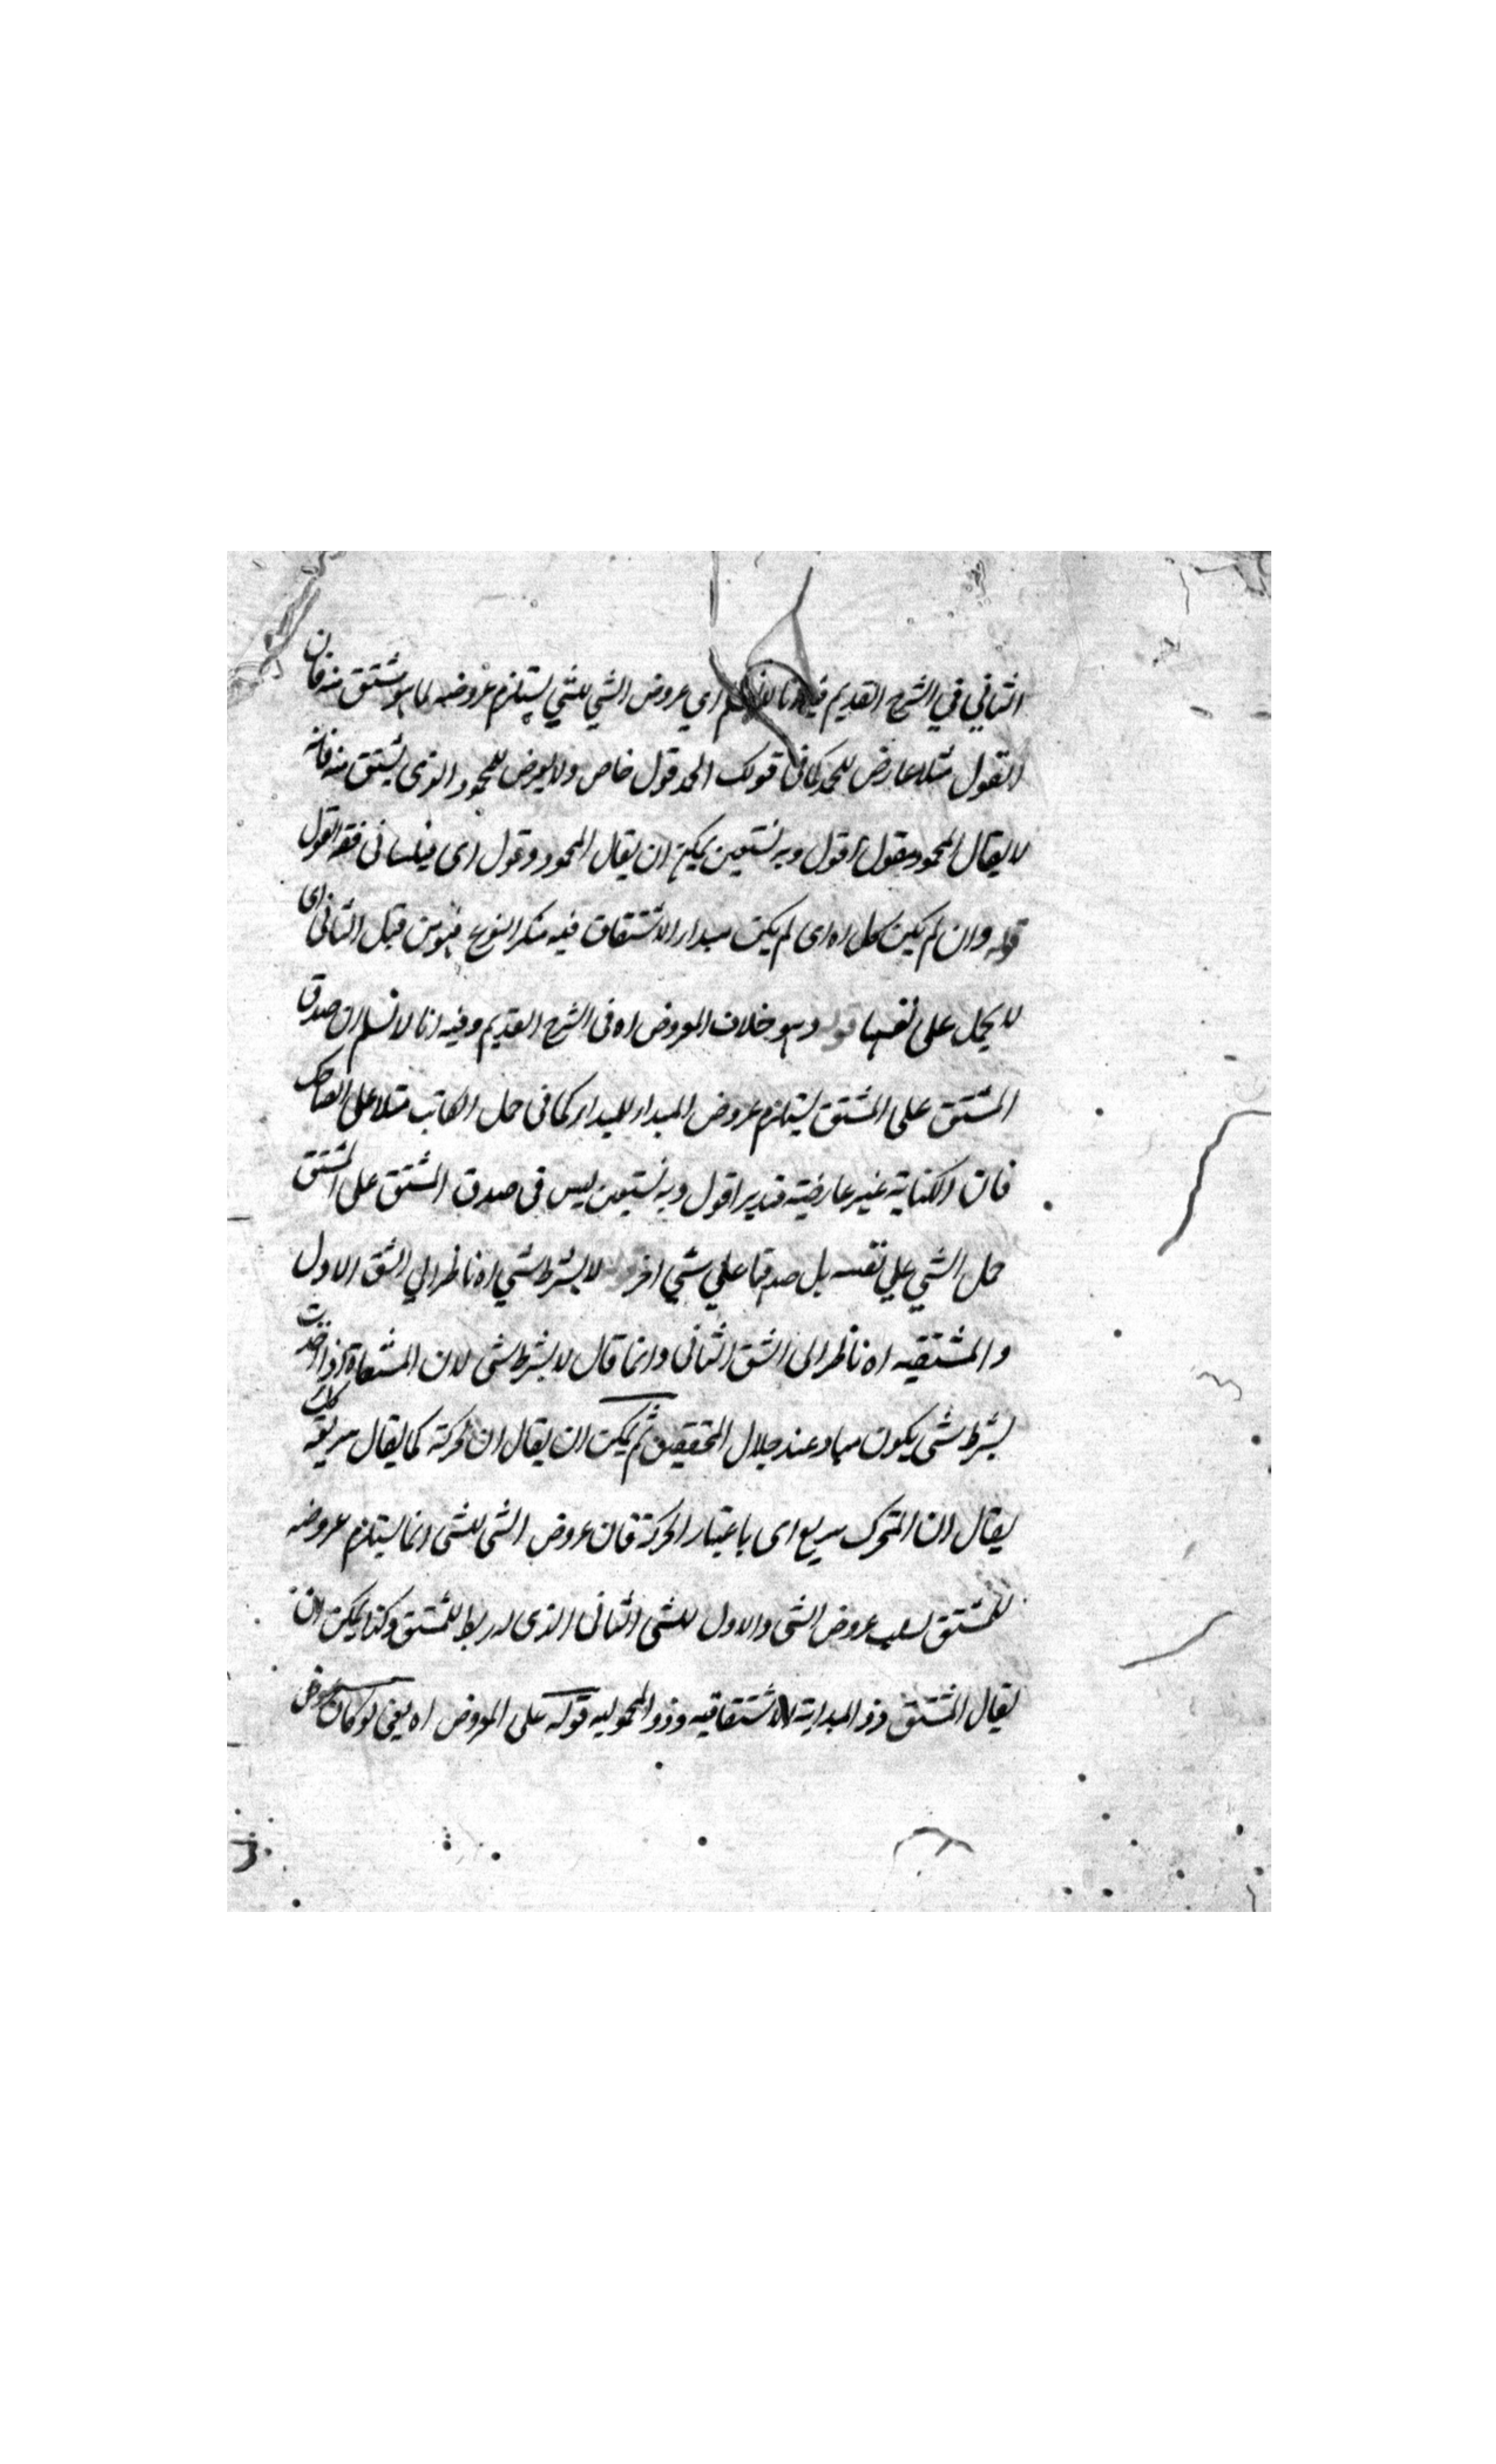 الثاني في الشرح القديم فيه انا لا نسلم اي عروض الشي للشي يستلزم عروضه لما هو مشتق منه فان
القول مثلا عارض للحمد كما في قولك الحمد قول خاص ولا يعرض للمحمود الذي يشتق منه فانه
لا يقال المحمود مقول اقول وبه نستعين يمكن ان يقال المحمود ذو قول اى فيلسانى فقه القول
قوله وان لم يكن كل اه اى لم يكن مبدار الاشتقاق فيه متكرر النوع فهو من قبيل الثانى اى
لا يحمل على نفسها قوله وهو خلاف المعروض اه فى الشرح القديم وفيه انا لا نسلم ان صدق
المشتق على المشتق يستلزم عروض المبدار للمبدار كما فى حمل الكاتب مثلا على الضاحك
فان الكتابة غير عارضية فتدبر اقول وبه نستعين ليس فى صدق المشتق على المشتق
حمل الشي علي نفسه بل صدقها علي شي اخر لا بشرط شي اه ناظر الي الشق الاول
والمشتقيه اه ناظر الى الشق الثانى وانما قال لا بشرط شى لان المشتقاة اذا اخذت
بشرط شى يكون مباد عند جلال المحققين ثم يمكن ان يقال ان حركة كما يقال سريعة كك
يقال ان المتحرك سريع اى باعتبار الحركة فان عروض الشى للشى انما يستلزم عروضه
للمشتق بسبب عروض الشى والاول للشى الثانى الذى له ربط للمشتق وكذا يمكن ان
يقال المشتق ذو المبداية الاشتقاقيه وذو المحموليه قوله على المعروض اه يعنى لو كان عروض